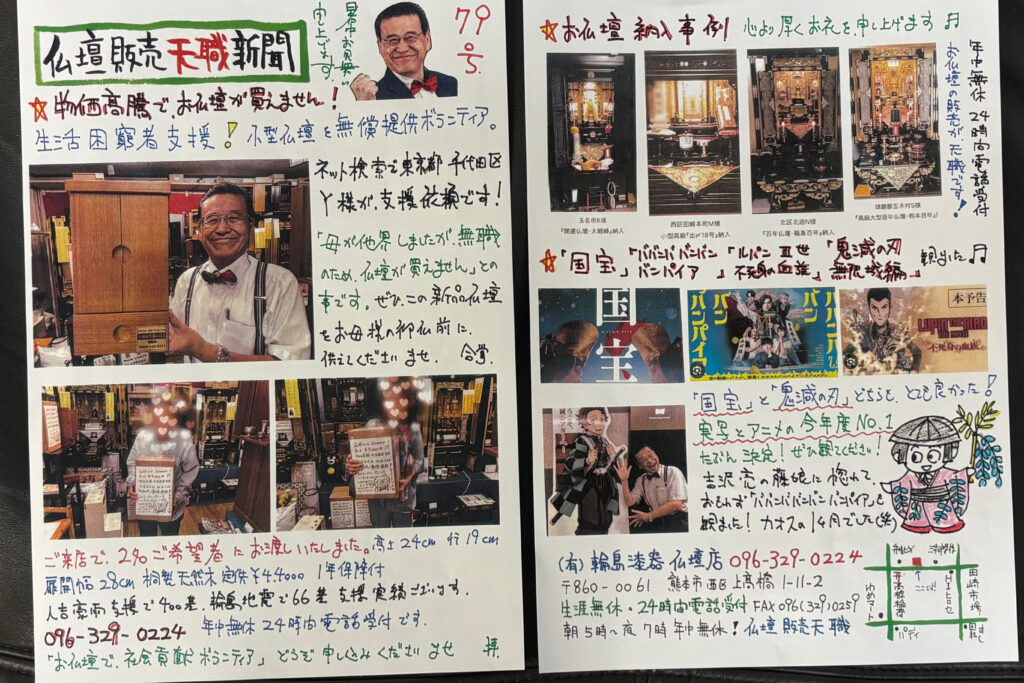 仏壇販売天職新聞
昇帝お見舞い
申し上げます。
79号
☆物価高騰でお仏壇が買えません！
生活困窮者支援！小型仏壇を無償提供ボランティア。
ネット検索で東京都千代田区
Y様が、支援依頼です！
「母が他界しましたが、無職
のため、仏壇が買えません」との
事です。ぜひ、この新品仏壇
をお母様の御仏前に、
供えてくださいませ。合掌
ご来店で、2名ご希望者にお渡しいたしました。高さ24cm 行19cm
扉開幅28cm 桐製天然木 定価￥44000 1年保障付
人吉豪雨支援で400基、輪島地震で66基支援実績ございます。
096-329-0224 年中無休24時間電話受付です。
「お仏壇で、社会貢献ボランティア」どうぞ申し込みくださいませ 拝
☆お仏壇納入事例 心より厚くお礼を申し上げます♬
年中無休 24時間電話受付
お仏壇の販売が、天職です！
玉名市K様
『開運仏壇・大鶴峰』納入
西区田崎本町M様
小型高級『出〆18号』納入
北区北迫N様
『百年仏壇・輪島百年』納入
球磨郡五木村S様
『高級大型百年仏壇・熊本百年』
☆「国宝」「ババンババンバンバンパイア」「ルパン三世 不死身の血族」「鬼滅の刃 無限城編」観ました♬
国宝
ババンババンバンバンパイア
本予告
LUPIN THE IIIRD
不死身の血族
「国宝」と「鬼滅の刃」どちらも、とても良かった！
実写とアニメの今年度No.1
たぶん決定！ぜひ観てください！
吉沢亮の藤娘に惚れて
おもわず「ババンババンバンバンパイア」も
観ました！カオスの1ヶ月でした(笑)
(有)輪島漆器仏壇店 096-329-0224
〒860-0061 熊本市西区上高橋1-11-2
生涯無休・24時間電話受付 FAX096(329)0259
朝5時〜夜7時 年中無休！仏壇販売天職
ここだよ
田崎市場